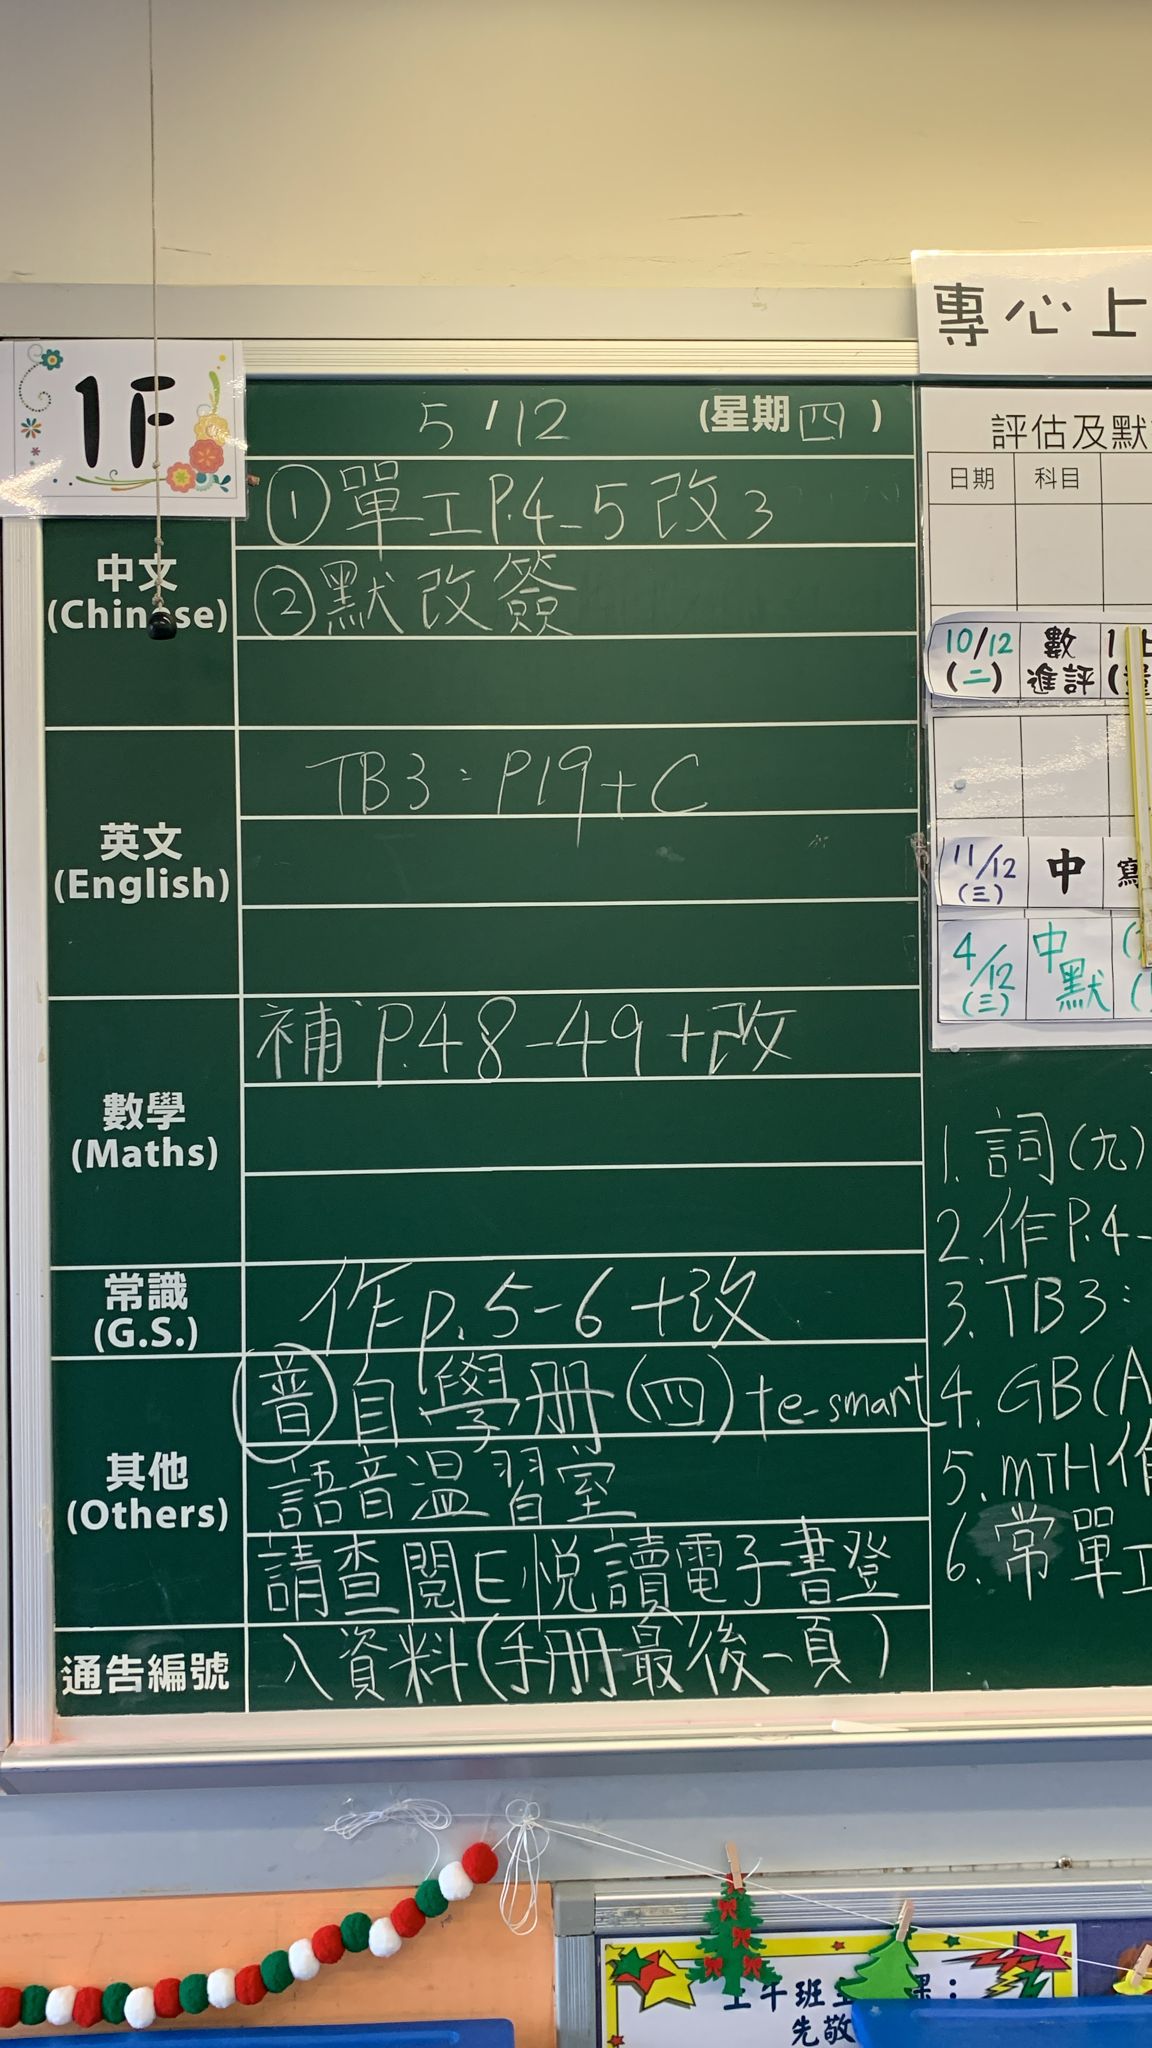 專心上
1F
5/12 (星期四)
中文
(Chinese)
①單工P.4-5改3
②默改簽
英文
(English)
TB3:P19+C
數學
(Maths)
補P.48-49+改
常識
(G.S.)
作p.5-6+改
其他
(Others)
普 自學册(四)+e-smart
語音溫習室
請查閱E悅讀電子書登
通告編號
入資料(手册最後一頁)
評估及默
日期 科目
10/12
(二)
數
進評
1上
11/12
(三)
中
寫
4/12
(三)
中
默
1. 詞(九)
2. 作P.4-
3. TB3:
4. GB(A
5. MTH作
6. 常單工
上午班
課:
先敬